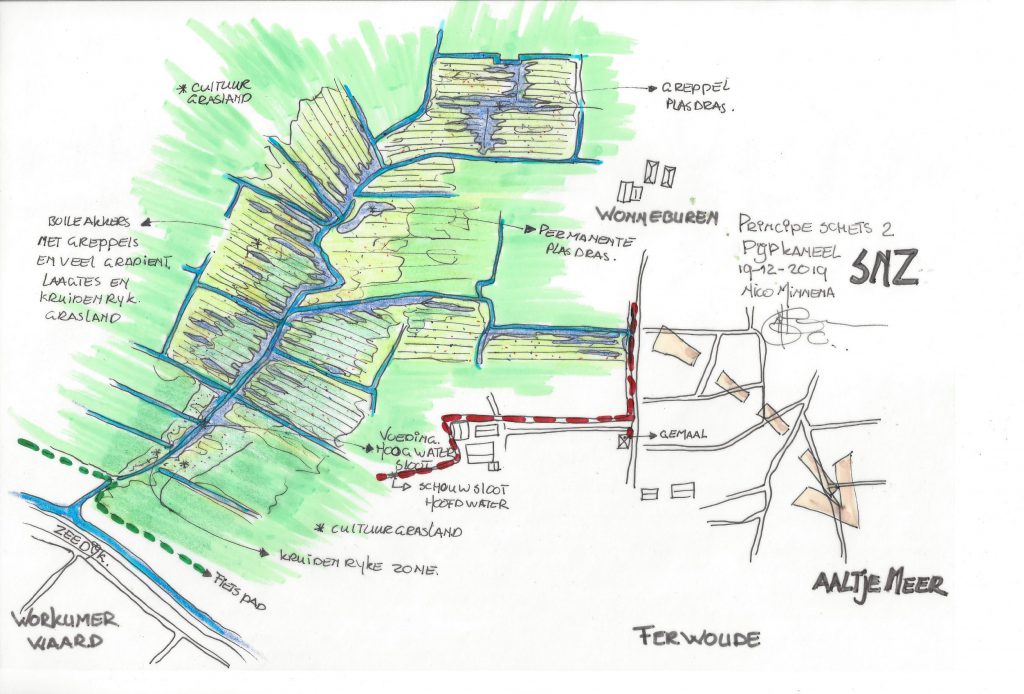 * CULTUUR
GRASLAND
GREPPEL
PLASDRAS.
WONNEBUREN
BOLLE AKKERS
MET GREPPELS
EN VEEL GRADIENT,
LAAGTES EN
KRUIDENRYK.
GRASLAND
PERMANENTE
PLASDRAS.
PRINCIPE SCHETS 2
PIJPKANEEL
19-12-2019
NICO MINNEMA
SNZ
VOEDING.
HOOGWATER
SLOOT
GEMAAL
SCHOUWSLOOT
HOOFDWATER
* CULTUURGRASLAND
KRUIDENRYKE ZONE.
ZEEDYK.
FIETSPAD
WORKUMER
WAARD
AALTJEMEER
FERWOUDE